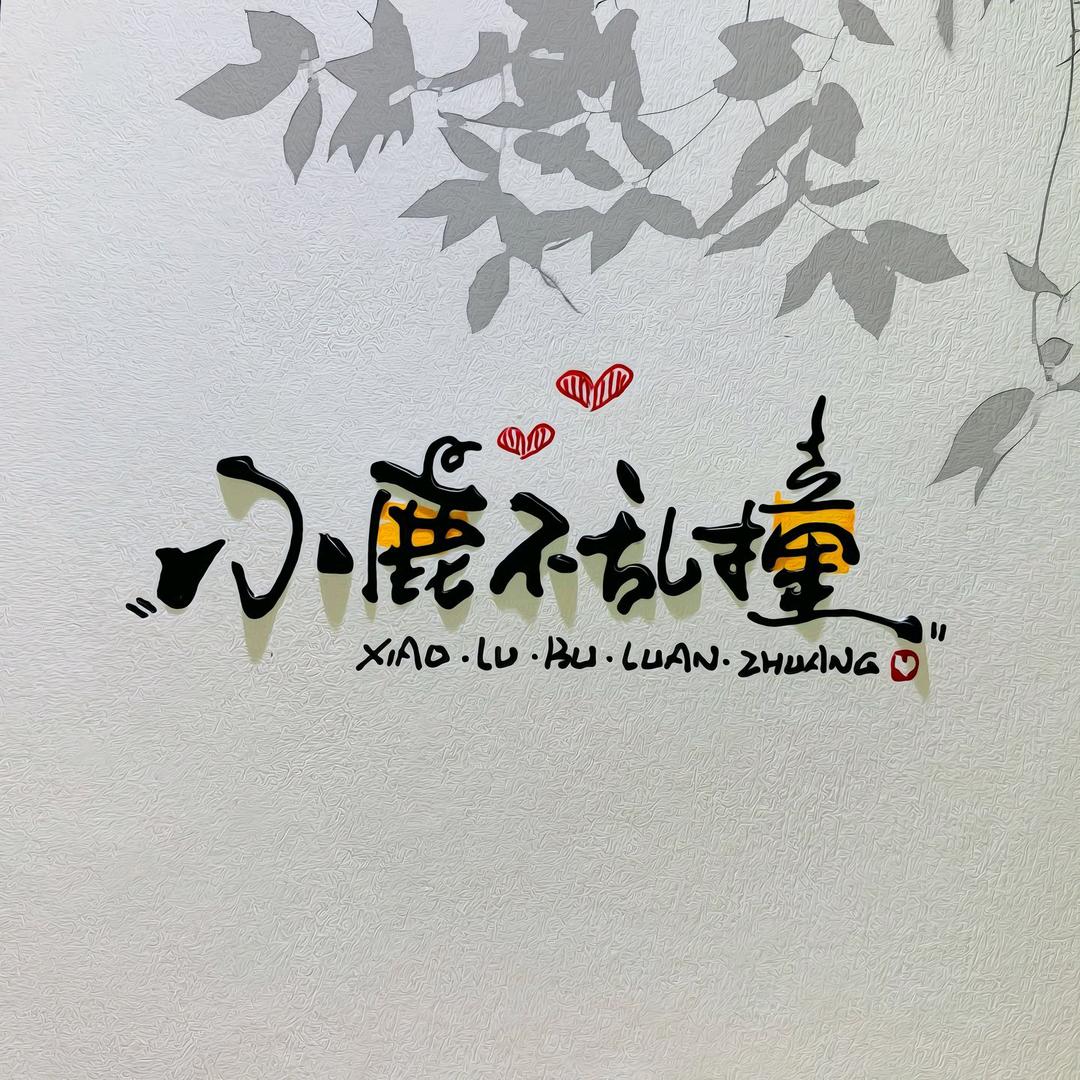 "小鹿不乱撞"
XIAO·LU·BU·LUAN·ZHUANG